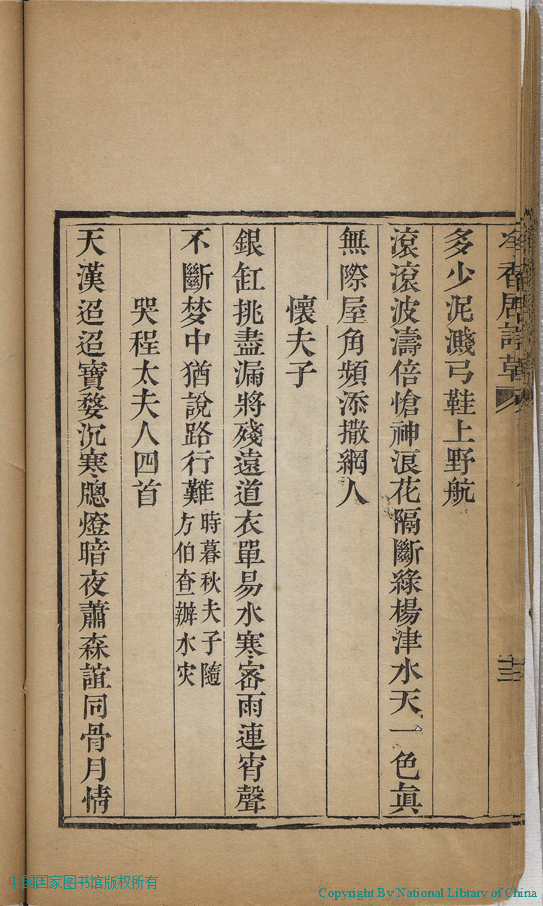 多少泥濺弓鞋上野航
滾滾波濤倍愴神浪花隔斷綠楊津水天一色眞
無際屋角頻添撒網人
懷夫子
銀缸挑盡漏將殘遠道衣單易水寒密雨連宵聲
不斷梦中猶說路行難時暮秋夫子隨
方伯查辦水灾
哭程太夫人四首
天漢迢迢寶婺沉寒牕燈暗夜蕭森誼同骨月情
香居詩草
十二
中国国家图书馆版权所有
Copyright By National Library of China